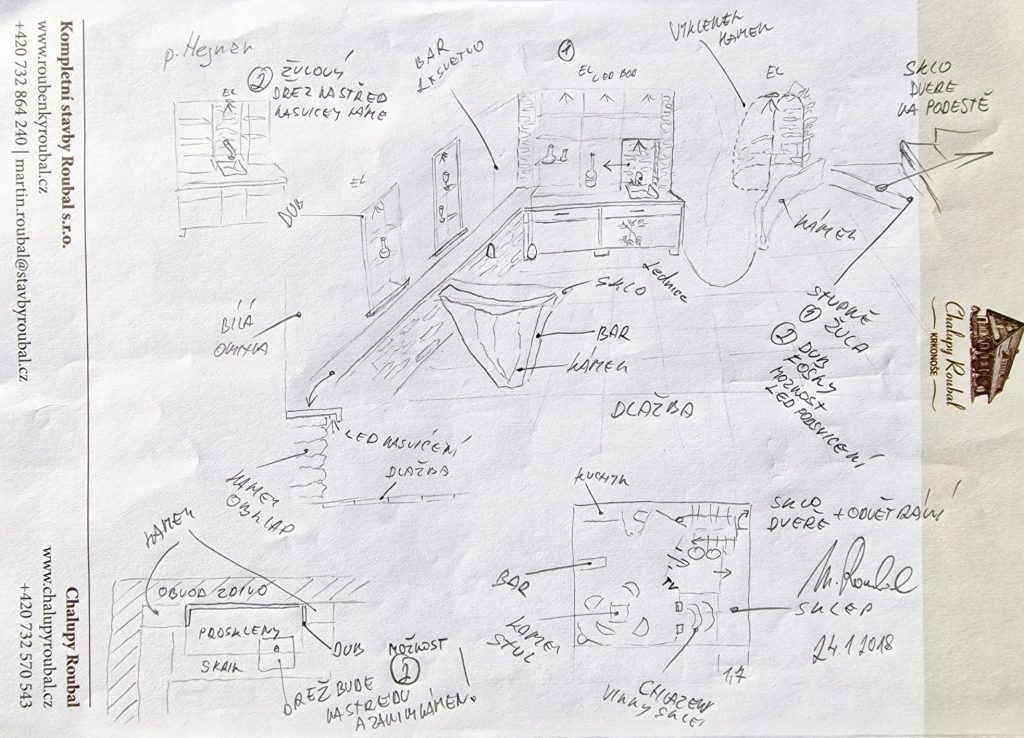 Kompletní stavby Roubal s.r.o.
www.roubenkyroubal.cz
+420 732 864 240 | martin.roubal@stavbyroubal.cz
Chalupy Roubal
www.chalupyroubal.cz
+420 732 570 543
Chalupy Roubal
KRKONOŠE
p. Hejnar
② ŽULOVÝ
DŘEZ NASTŘED
EL
BAR
①
EL LED BOD
VÝKLENEK
KAMEN
EL
SKLO
DVEŘE
NA PODESTĚ
EL
DUB
BÍLÁ
OMÍTKA
KÁMEN
SKLO
Lednice
BAR
KÁMEN
STUPNĚ
① ŽULA
② DUB
FOŠNY
MOŽNOST
LED PODSVICENÍ
DLAŽBA
LED NASVÍCENÍ
DLAŽBA
KAMEN
OBKLAD
KAMEN
OBVOD ZDIVO
PROSKLENÝ
SKŘÍŇ
DUB
MOŽNOST
②
DŘEZ BUDE
NASTŘEDU
A ZA NÍM KÁMEN.
KUCHYN
SKLO
DVEŘE + ODVĚTRÁNÍ
BAR
TV
KAMEN
STŮL
SKLEP
M. Roubal
24.1 2018
1,7
CHLAZENÝ